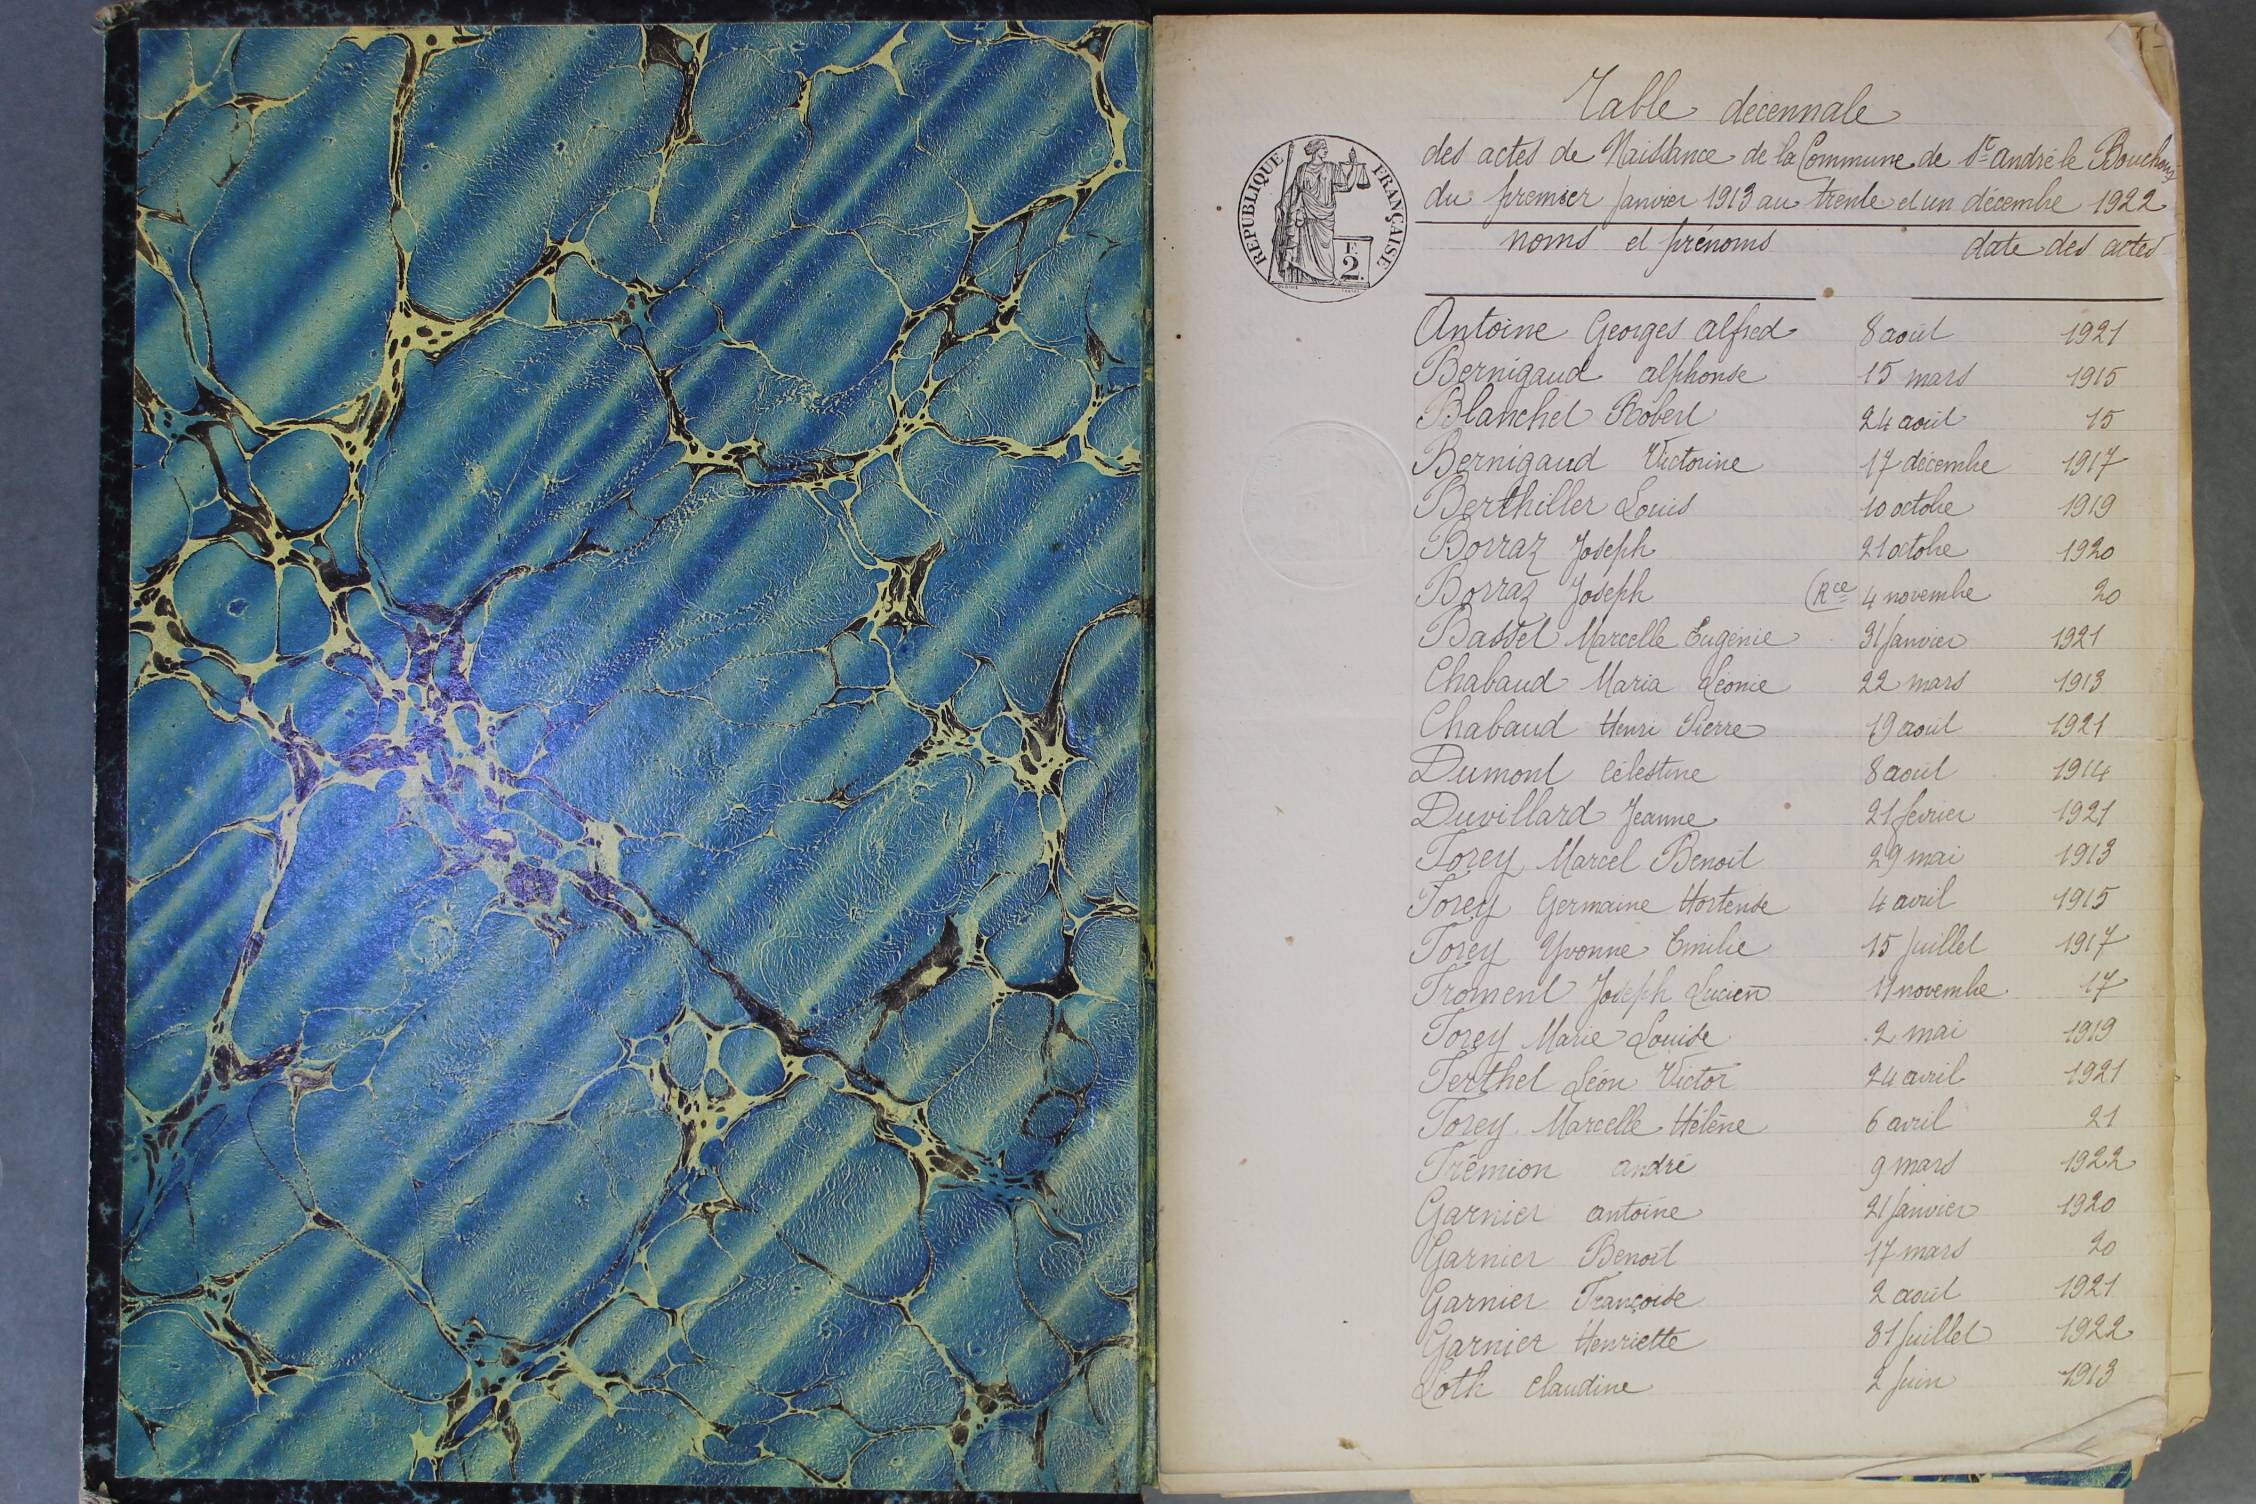 Table décennale
des actes de Naissance de la Commune de St André le Bouchoux
du premier Janvier 1913 au trente et un décembre 1922
noms et prénoms date des actes
RÉPUBLIQUE FRANÇAISE
F.
2.
Antoine Georges Alfred 8 août 1921
Bernigaud Alphonse 15 mars 1915
Blanchet Robert 24 août 15
Bernigaud Victorine 17 décembre 1917
Berthiller Louis 10 octobre 1919
Borraz Joseph 21 octobre 1920
Borraz Joseph (Rce 4 novembre 20
Basset Marcelle Eugénie 31 Janvier 1921
Chabaud Maria Léonie 22 mars 1913
Chabaud Henri Pierre 19 août 1921
Dumont Célestine 8 août 1914
Duvillard Jeanne 21 février 1921
Forey Marcel Benoît 29 mai 1913
Forey Germaine Hortense 4 avril 1915
Forey Yvonne Emilie 15 Juillet 1917
Froment Joseph Lucien 11 novembre 17
Forey Marie Louise 2 mai 1919
Ferthet Léon Victor 24 avril 1921
Forey Marcelle Hélène 6 avril 21
Frémion André 9 mars 1922
Garnier Antoine 21 Janvier 1920
Garnier Benoît 17 mars 20
Garnier Françoise 2 août 1921
Garnier Henriette 31 Juillet 1922
Loth Claudine 2 Juin 1913